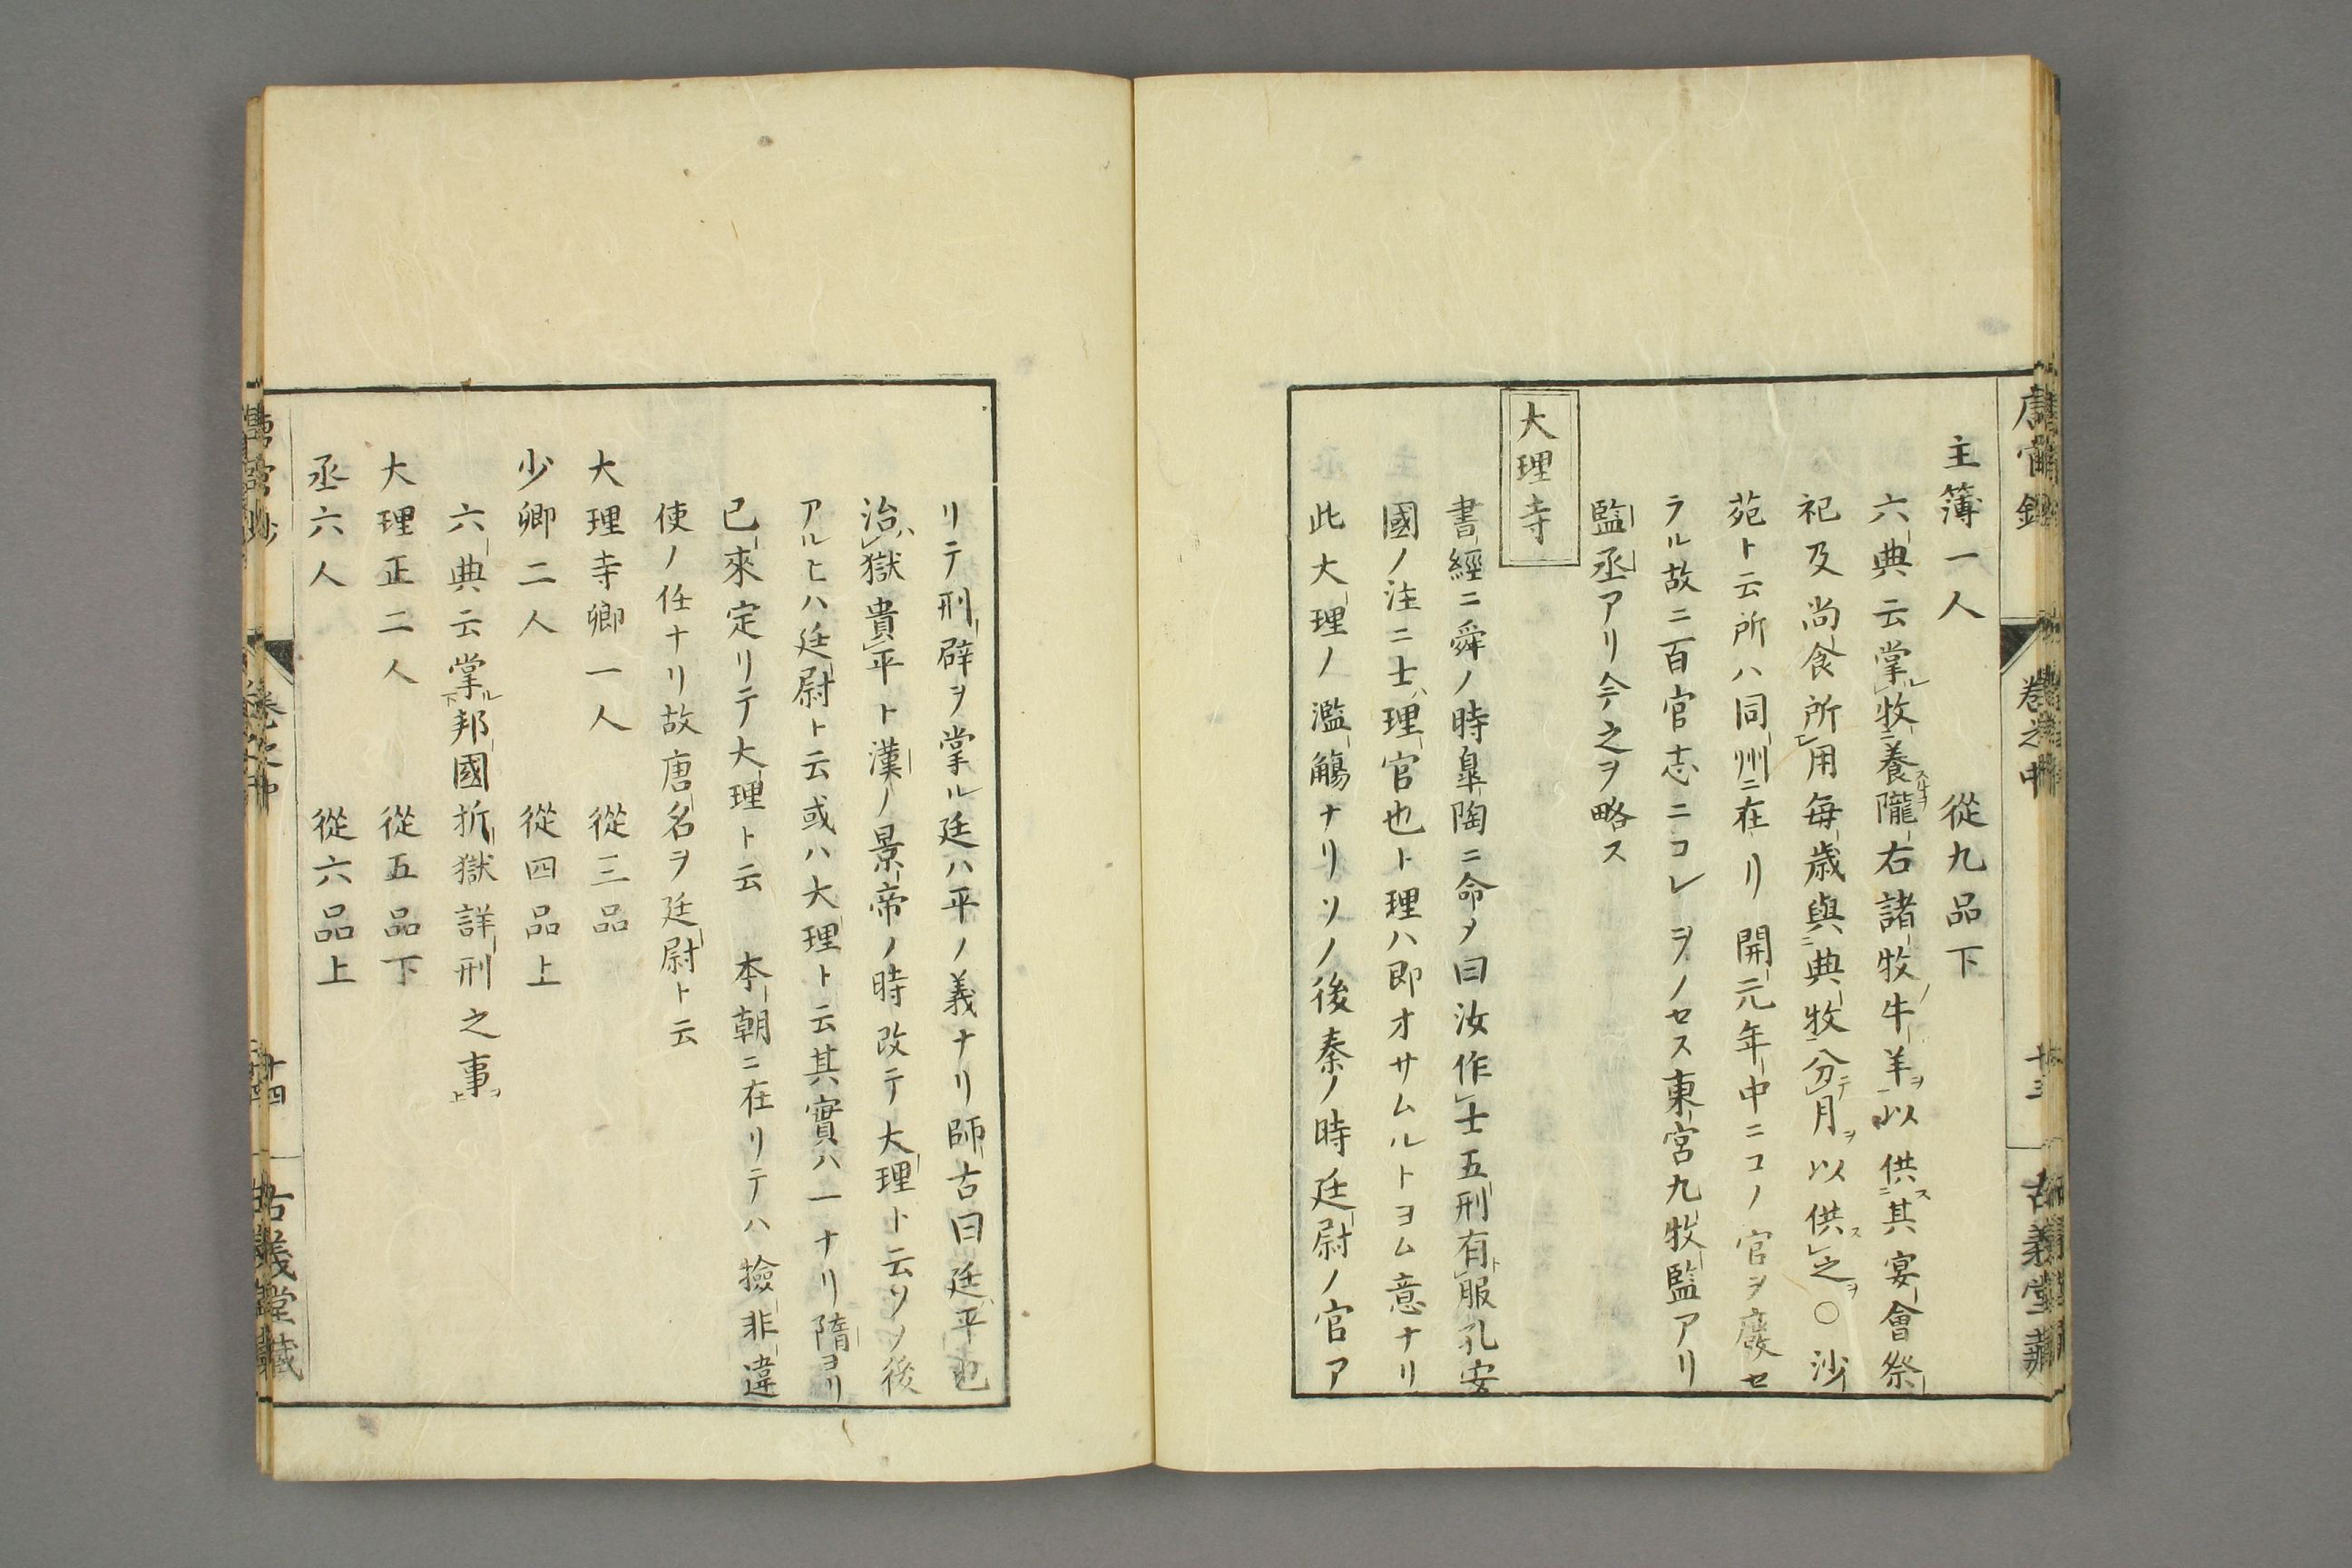 主簿一人　　　從九品下
六典云掌牧養隴右諸牧牛羊以供其宴會祭
祀及尚食所用毎歳與典牧分月以供之○沙
苑ト云所ハ同州ニ在リ開元年中ニコノ官ヲ廢セ
ラル故ニ百官志ニコレヲノセス東宮九牧監アリ
監丞アリ今之ヲ略ス
大理寺
書經ニ舜ノ時皐陶ニ命メ曰汝作士五刑有服孔安
國ノ注ニ士理官也ト理ハ即オサムルトヨム意ナリ
此大理ノ濫觴ナリソノ後秦ノ時廷尉ノ官ア
リテ刑辟ヲ掌ル廷ハ平ノ義ナリ師古曰廷平也
治獄貴平ト漢ノ景帝ノ時改テ大理ト云ソノ後
アルヒハ廷尉ト云或ハ大理ト云其實ハ一ナリ隋ヨリ
已來定リテ大理ト云　本朝ニ在リテハ撿非違
使ノ任ナリ故唐名ヲ廷尉ト云
大理寺卿一人　從三品
少卿二人　　　從四品上
六典云掌邦國折獄詳刑之事
大理正二人　　從五品下
丞六人　　　　從六品上
唐官鈔　卷之中　十四　古義堂藏